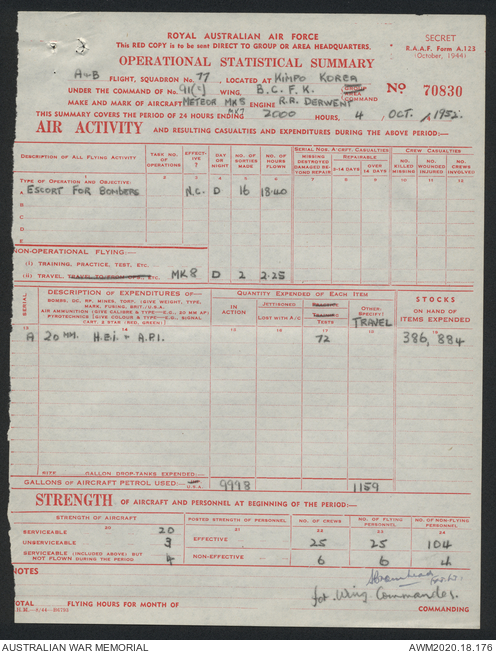 ROYAL AUSTRALIAN AIR FORCE
This RED COPY is to be sent DIRECT TO GROUP OR AREA HEADQUARTERS.
SECRET
R.A.A.F. Form A.123
(October, 1944)
OPERATIONAL STATISTICAL SUMMARY
A+B FLIGHT, SQUADRON No. 77, LOCATED AT KIMPO KOREA
UNDER THE COMMAND OF No. 91(c) WING, B.C.F.K. GROUP AREA COMMAND
No 70830
MAKE AND MARK OF AIRCRAFT METEOR MK 8 ENGINE R.R. DERWENT
MK7
THIS SUMMARY COVERS THE PERIOD OF 24 HOURS ENDING 2000 HOURS, 4, OCT., 1952.
AIR ACTIVITY AND RESULTING CASUALTIES AND EXPENDITURES DURING THE ABOVE PERIOD:—
DESCRIPTION OF ALL FLYING ACTIVITY
TASK NO. OF OPERATIONS
EFFECTIVE ?
DAY OR NIGHT
NO. OF SORTIES MADE
NO. OF HOURS FLOWN
SERIAL NOS. A'CRFT. CASUALTIES
MISSING DESTROYED DAMAGED BEYOND REPAIR
REPAIRABLE
0-14 DAYS
OVER 14 DAYS
CREW CASUALTIES
NO. KILLED MISSING
NO. WOUNDED INJURED
NO. CREWS INVOLVED
1 2 3 4 5 6 7 8 9 10 11 12
TYPE OF OPERATION AND OBJECTIVE:
A ESCORT FOR BOMBERS N.C. D 16 18.40
B
C
D
E
NON-OPERATIONAL FLYING:—
(i) TRAINING, PRACTICE, TEST, ETC.
(ii) TRAVEL, TRAVEL TO/FROM OPS., ETC. MK8 D 2 2.25
SERIAL
DESCRIPTION OF EXPENDITURES OF—
BOMBS, DC. RP. MINES, TORP. (GIVE WEIGHT, TYPE, MARK, FUSING, BRIT./U.S.A.
AIR AMMUNITION (GIVE CALIBRE & TYPE—E.G., 20 MM AF)
PYROTECHNICS (GIVE COLOUR & TYPE—E.G., SIGNAL CART. 2 STAR (RED, GREEN)
QUANTITY EXPENDED OF EACH ITEM
IN ACTION
JETTISONED
LOST WITH A/C
PRACTICE TRAINING TESTS
OTHER. SPECIFY?
TRAVEL
STOCKS
ON HAND OF ITEMS EXPENDED
13 14 15 16 17 18 19
A 20 MM. H.E.I. + A.P.I. 72 386,884
SIZE GALLON DROP-TANKS EXPENDED:—
GALLONS OF AIRCRAFT PETROL USED:— U.S.A. 9998 1159
STRENGTH OF AIRCRAFT AND PERSONNEL AT BEGINNING OF THE PERIOD:—
STRENGTH OF AIRCRAFT
POSTED STRENGTH OF PERSONNEL
NO. OF CREWS
NO. OF FLYING PERSONNEL
NO. OF NON-FLYING PERSONNEL
20 21 22 23 24
SERVICEABLE 20
EFFECTIVE 25 25 104
UNSERVICEABLE 3
SERVICEABLE (INCLUDED ABOVE) BUT NOT FLOWN DURING THE PERIOD 4
NON-EFFECTIVE 6 6 4
NOTES
for Wing Commander.
TOTAL FLYING HOURS FOR MONTH OF
COMMANDING
AUSTRALIAN WAR MEMORIAL
AWM2020.18.176